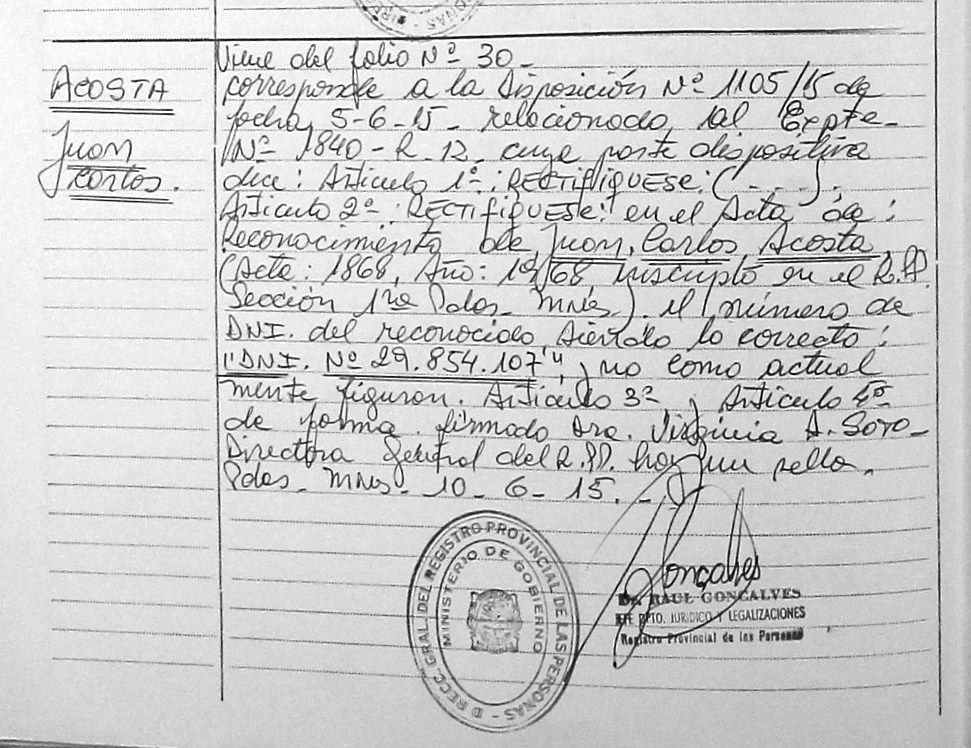 Viene del folio Nº 30_
ACOSTA
Juan
Carlos.
corresponde a la Disposición Nº 1105/15 de
fecha 5-6-15_ relacionado al Expte_
Nº 1840-R_12_ cuya parte dispositiva
dice: Articulo 1º: RECTIFIQUESE: (....).
Articulo 2º: RECTIFIQUESE: en el Acta de:
Reconocimiento de Juan Carlos Acosta
(Acta: 1868, Año: 1968, inscripto en el R.PP.
Sección 1ra Pdas_ Mnes) el número de
DNI. del reconocido siendo lo correcto:
"DNI. Nº 29.854.107" y no como actual
mente figuran. Articulo 3º y Articulo 4º
de forma. firmado Dra. Virginia A. Soto_
Directora General del R.PP. hay un sello.
Pdas_ Mnes_ 10_ 6_ 15._
D RECC. GRAL. DEL REGISTRO PROVINCIAL DE LAS PERSONAS -
MINISTERIO DE GOBIERNO
Gonçalves
Dr. RAUL GONCALVES
JEFE DPTO. JURIDICO Y LEGALIZACIONES
Registro Provincial de las Personas